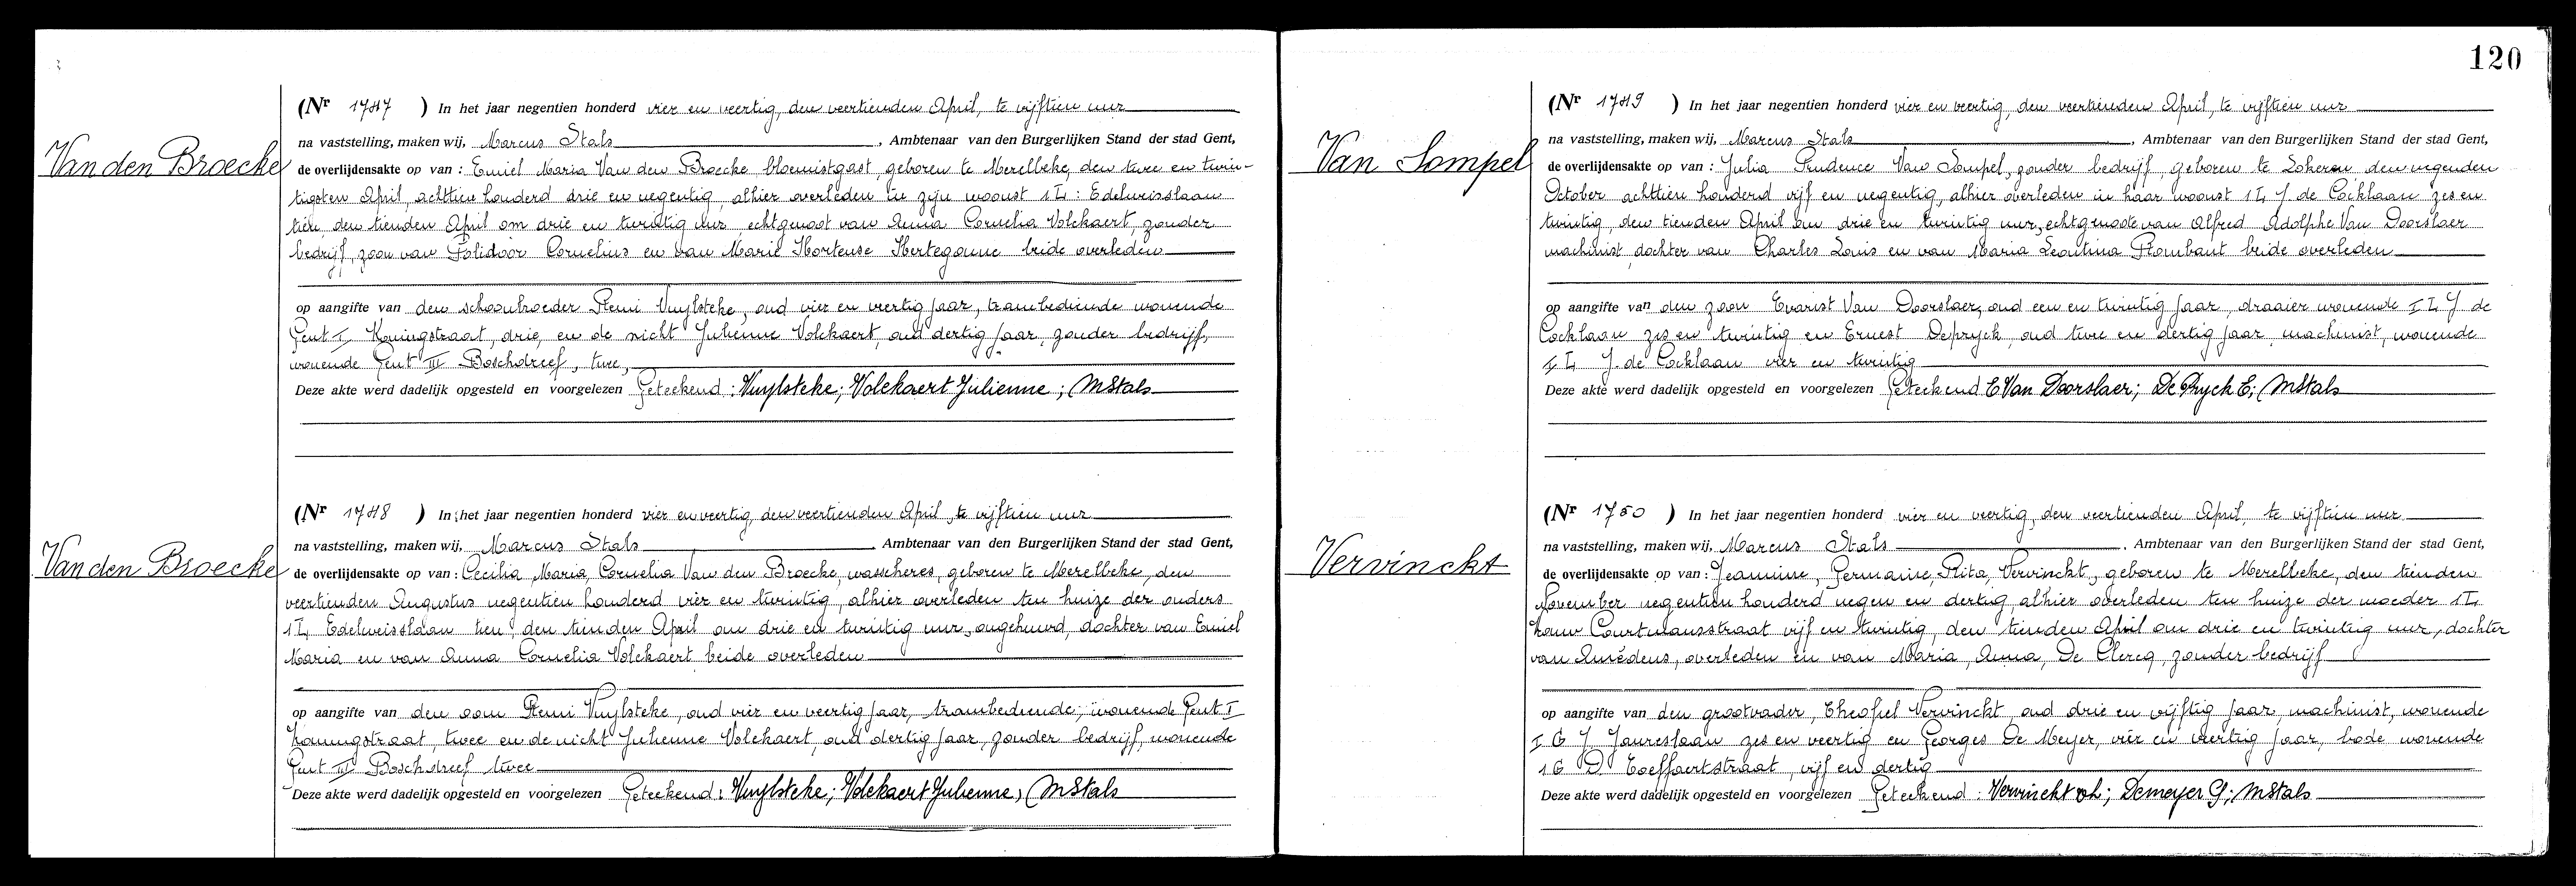 120
Van den Broecke
(Nr 1747 ) In het jaar negentien honderd vier en veertig, den veertienden April, te vijftien uur
na vaststelling, maken wij, Marcus Stals, Ambtenaar van den Burgerlijken Stand der stad Gent,
de overlijdensakte op van : Emiel Maria Van den Broecke bloemistgast, geboren te Merelbeke, den twee en twin-
tigsten April, achttien honderd drie en negentig, alhier overleden in zijn woonst 1L: Edelweisslaan
tien, den tienden April om drie en twintig uur, echtgenoot van Anna Cornelia Volckaert, zonder
bedrijf, zoon van Polidoor Cornelius en van Marie Hortense Hertegonne beide overleden
op aangifte van den schoonbroeder Remi Vuylsteke, oud vier en veertig jaar, trambediende wonende
Gent I Koningstraat, drie, en de nicht Julienne Volckaert, oud dertig jaar, zonder bedrijf,
wonende Gent III Boschdreef, twee,
Deze akte werd dadelijk opgesteld en voorgelezen Geteekend : Vuylsteke; Volckaert Julienne ; MStals
Van den Broecke
(Nr 1748 ) In het jaar negentien honderd vier en veertig, den veertienden April, te vijftien uur
na vaststelling, maken wij, Marcus Stals, Ambtenaar van den Burgerlijken Stand der stad Gent,
de overlijdensakte op van : Cecilia, Maria, Cornelia Van den Broecke, wascheres, geboren te Merelbeke, den
veertienden Augustus negentien honderd vier en twintig, alhier overleden ten huize der ouders
1L Edelweisslaan tien, den tienden April om drie en twintig uur, ongehuwd, dochter van Emiel
Maria en van Anna Cornelia Volckaert beide overleden
op aangifte van den oom Remi Vuylsteke, oud vier en veertig jaar, trambediende, wonende Gent I
Koningstraat, twee en de nicht Julienne Volckaert, oud dertig jaar, zonder bedrijf, wonende
Gent III Boschdreef twee
Deze akte werd dadelijk opgesteld en voorgelezen Geteekend : Vuylsteke; Volckaert Julienne; MStals
Van Lompel
(Nr 1749 ) In het jaar negentien honderd vier en veertig, den veertienden April, te vijftien uur
na vaststelling, maken wij, Marcus Stals, Ambtenaar van den Burgerlijken Stand der stad Gent,
de overlijdensakte op van : Julia Prudence Van Lompel, zonder bedrijf, geboren te Lokeren den negenden
October achttien honderd vijf en negentig, alhier overleden in haar woonst 1L J. de Cocklaan zes en
twintig, den tienden April om drie en twintig uur, echtgenoote van Alfred Adolphe Van Doorslaer
machinist, dochter van Charles Louis en van Maria Leontina Rombaut beide overleden
op aangifte van den zoon Evarist Van Doorslaer, oud een en twintig jaar, draaier wonende I L J. de
Cocklaan zes en twintig en Ernest Depryck, oud twee en dertig jaar, machinist, wonende
I L J. de Cocklaan vier en twintig
Deze akte werd dadelijk opgesteld en voorgelezen Geteekend E Van Doorslaer; De Pryck E; MStals
Vervinckt
(Nr 1750 ) In het jaar negentien honderd vier en veertig, den veertienden April, te vijftien uur
na vaststelling, maken wij, Marcus Stals, Ambtenaar van den Burgerlijken Stand der stad Gent,
de overlijdensakte op van : Jeannine, Germaine, Rita, Vervinckt, geboren te Merelbeke, den tienden
November negentien honderd negen en dertig, alhier overleden ten huize der moeder 1L
Courtmansstraat vijf en twintig, den tienden April om drie en twintig uur, dochter
van Amédeus, overleden en van Maria, Anna, De Clercq, zonder bedrijf
op aangifte van den grootvader, Theofiel Vervinckt, oud drie en vijftig jaar, machinist, wonende
I G J Jaureslaan zes en veertig en Georges De Meyer, vier en veertig jaar, bode wonende
1 G D. Toeffaertstraat, vijf en dertig
Deze akte werd dadelijk opgesteld en voorgelezen Geteekend : Vervinckt Th; Demeyer G; MStals